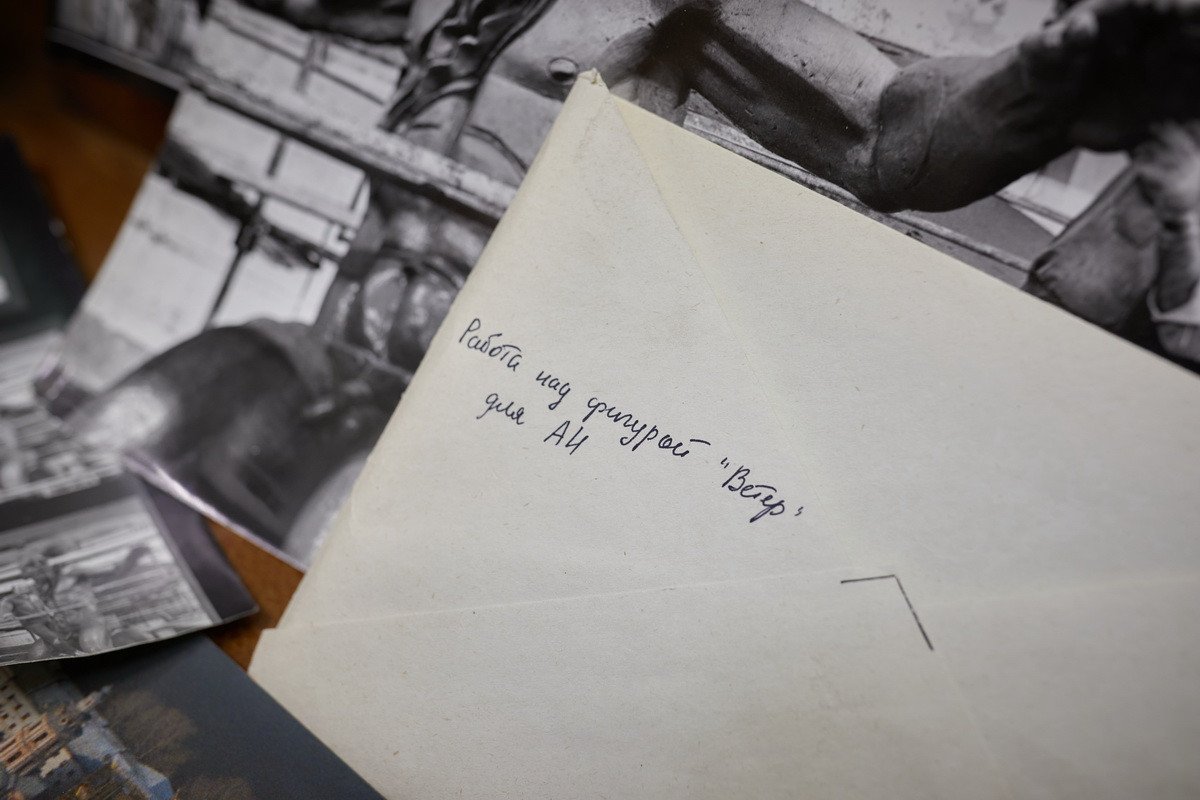 Работа над фигурой "Ветер"
для АН